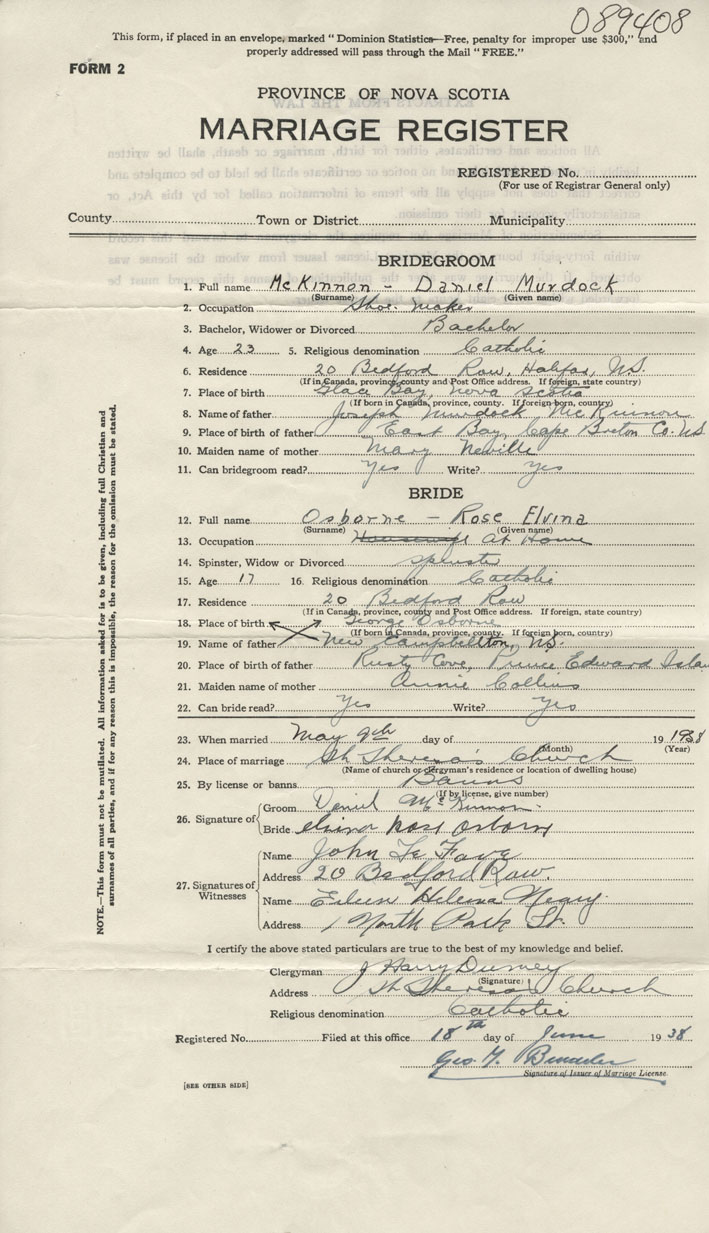 089408
This form, if placed in an envelope, marked "Dominion Statistics—Free, penalty for improper use $300," and
properly addressed will pass through the Mail "FREE."
FORM 2
PROVINCE OF NOVA SCOTIA
MARRIAGE REGISTER
REGISTERED No.
(For use of Registrar General only)
County Town or District Municipality
BRIDEGROOM
1. Full name McKinnon - Daniel Murdock
(Surname) (Given name)
2. Occupation Shoe maker
3. Bachelor, Widower or Divorced Bachelor
4. Age 23 5. Religious denomination Catholic
6. Residence 20 Bedford Row, Halifax, N.S.
(If in Canada, province, county and Post Office address. If foreign, state country)
7. Place of birth Glace Bay, Nova Scotia
(If born in Canada, province, county. If foreign-born, country)
8. Name of father Joseph Murdock McKinnon
9. Place of birth of father East Bay, Cape Breton Co. N.S
10. Maiden name of mother Mary Neville
11. Can bridegroom read? Yes Write? Yes
BRIDE
12. Full name Osborne - Rose Elvina
(Surname) (Given name)
13. Occupation Housewife At Home
14. Spinster, Widow or Divorced Spinster
15. Age 17 16. Religious denomination Catholic
17. Residence 20 Bedford Row
(If in Canada, province, county and Post Office address. If foreign, state country)
18. Place of birth George Osborne
(If born in Canada, province, county. If foreign born, country)
19. Name of father New Campbellton, N.S.
20. Place of birth of father Rusty Cove, Prince Edward Isla
21. Maiden name of mother Annie Collins
22. Can bride read? Yes Write? Yes
23. When married May 9th day of 19 1938
(Month) (Year)
24. Place of marriage St Theresa's Church
(Name of church or clergyman's residence or location of dwelling house)
25. By license or banns Banns
(If by license, give number)
26. Signature of
Groom Daniel McKinnon
Bride elvina Rose Osborn
27. Signatures of Witnesses
Name John Le Fave
Address 20 Bedford Row.
Name Eileen Helena
Address 1 North Park St.
I certify the above stated particulars are true to the best of my knowledge and belief.
Clergyman J Harry Durney
(Signature)
Address St Theresa's Church
Religious denomination Catholic
Registered No. Filed at this office 18th day of June 19 38
Geo. F.
Signature of Issuer of Marriage License
[SEE OTHER SIDE]
NOTE.—This form must not be mutilated. All information asked for is to be given, including full Christian and
surnames of all parties, and if for any reason this is impossible, the reason for the omission must be stated.